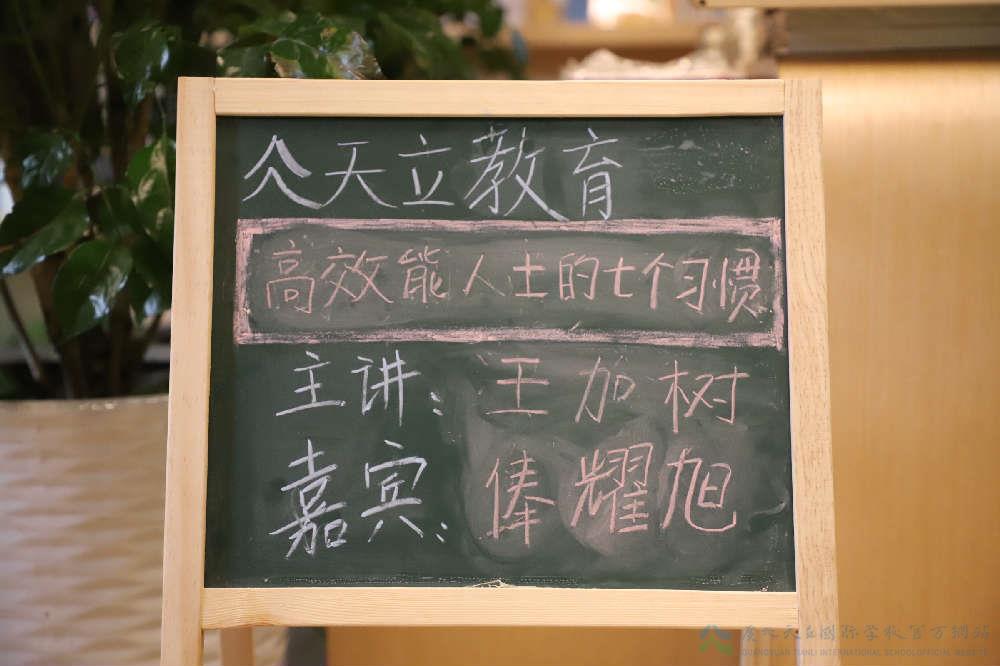 天立教育
高效能人士的七个习惯
主讲：王加树
嘉宾：俸耀旭
广元天立国际学校官方網站
GUANGYUAN TIANLI INTERNATIONAL SCHOOLOFFICIAL WEBSITE